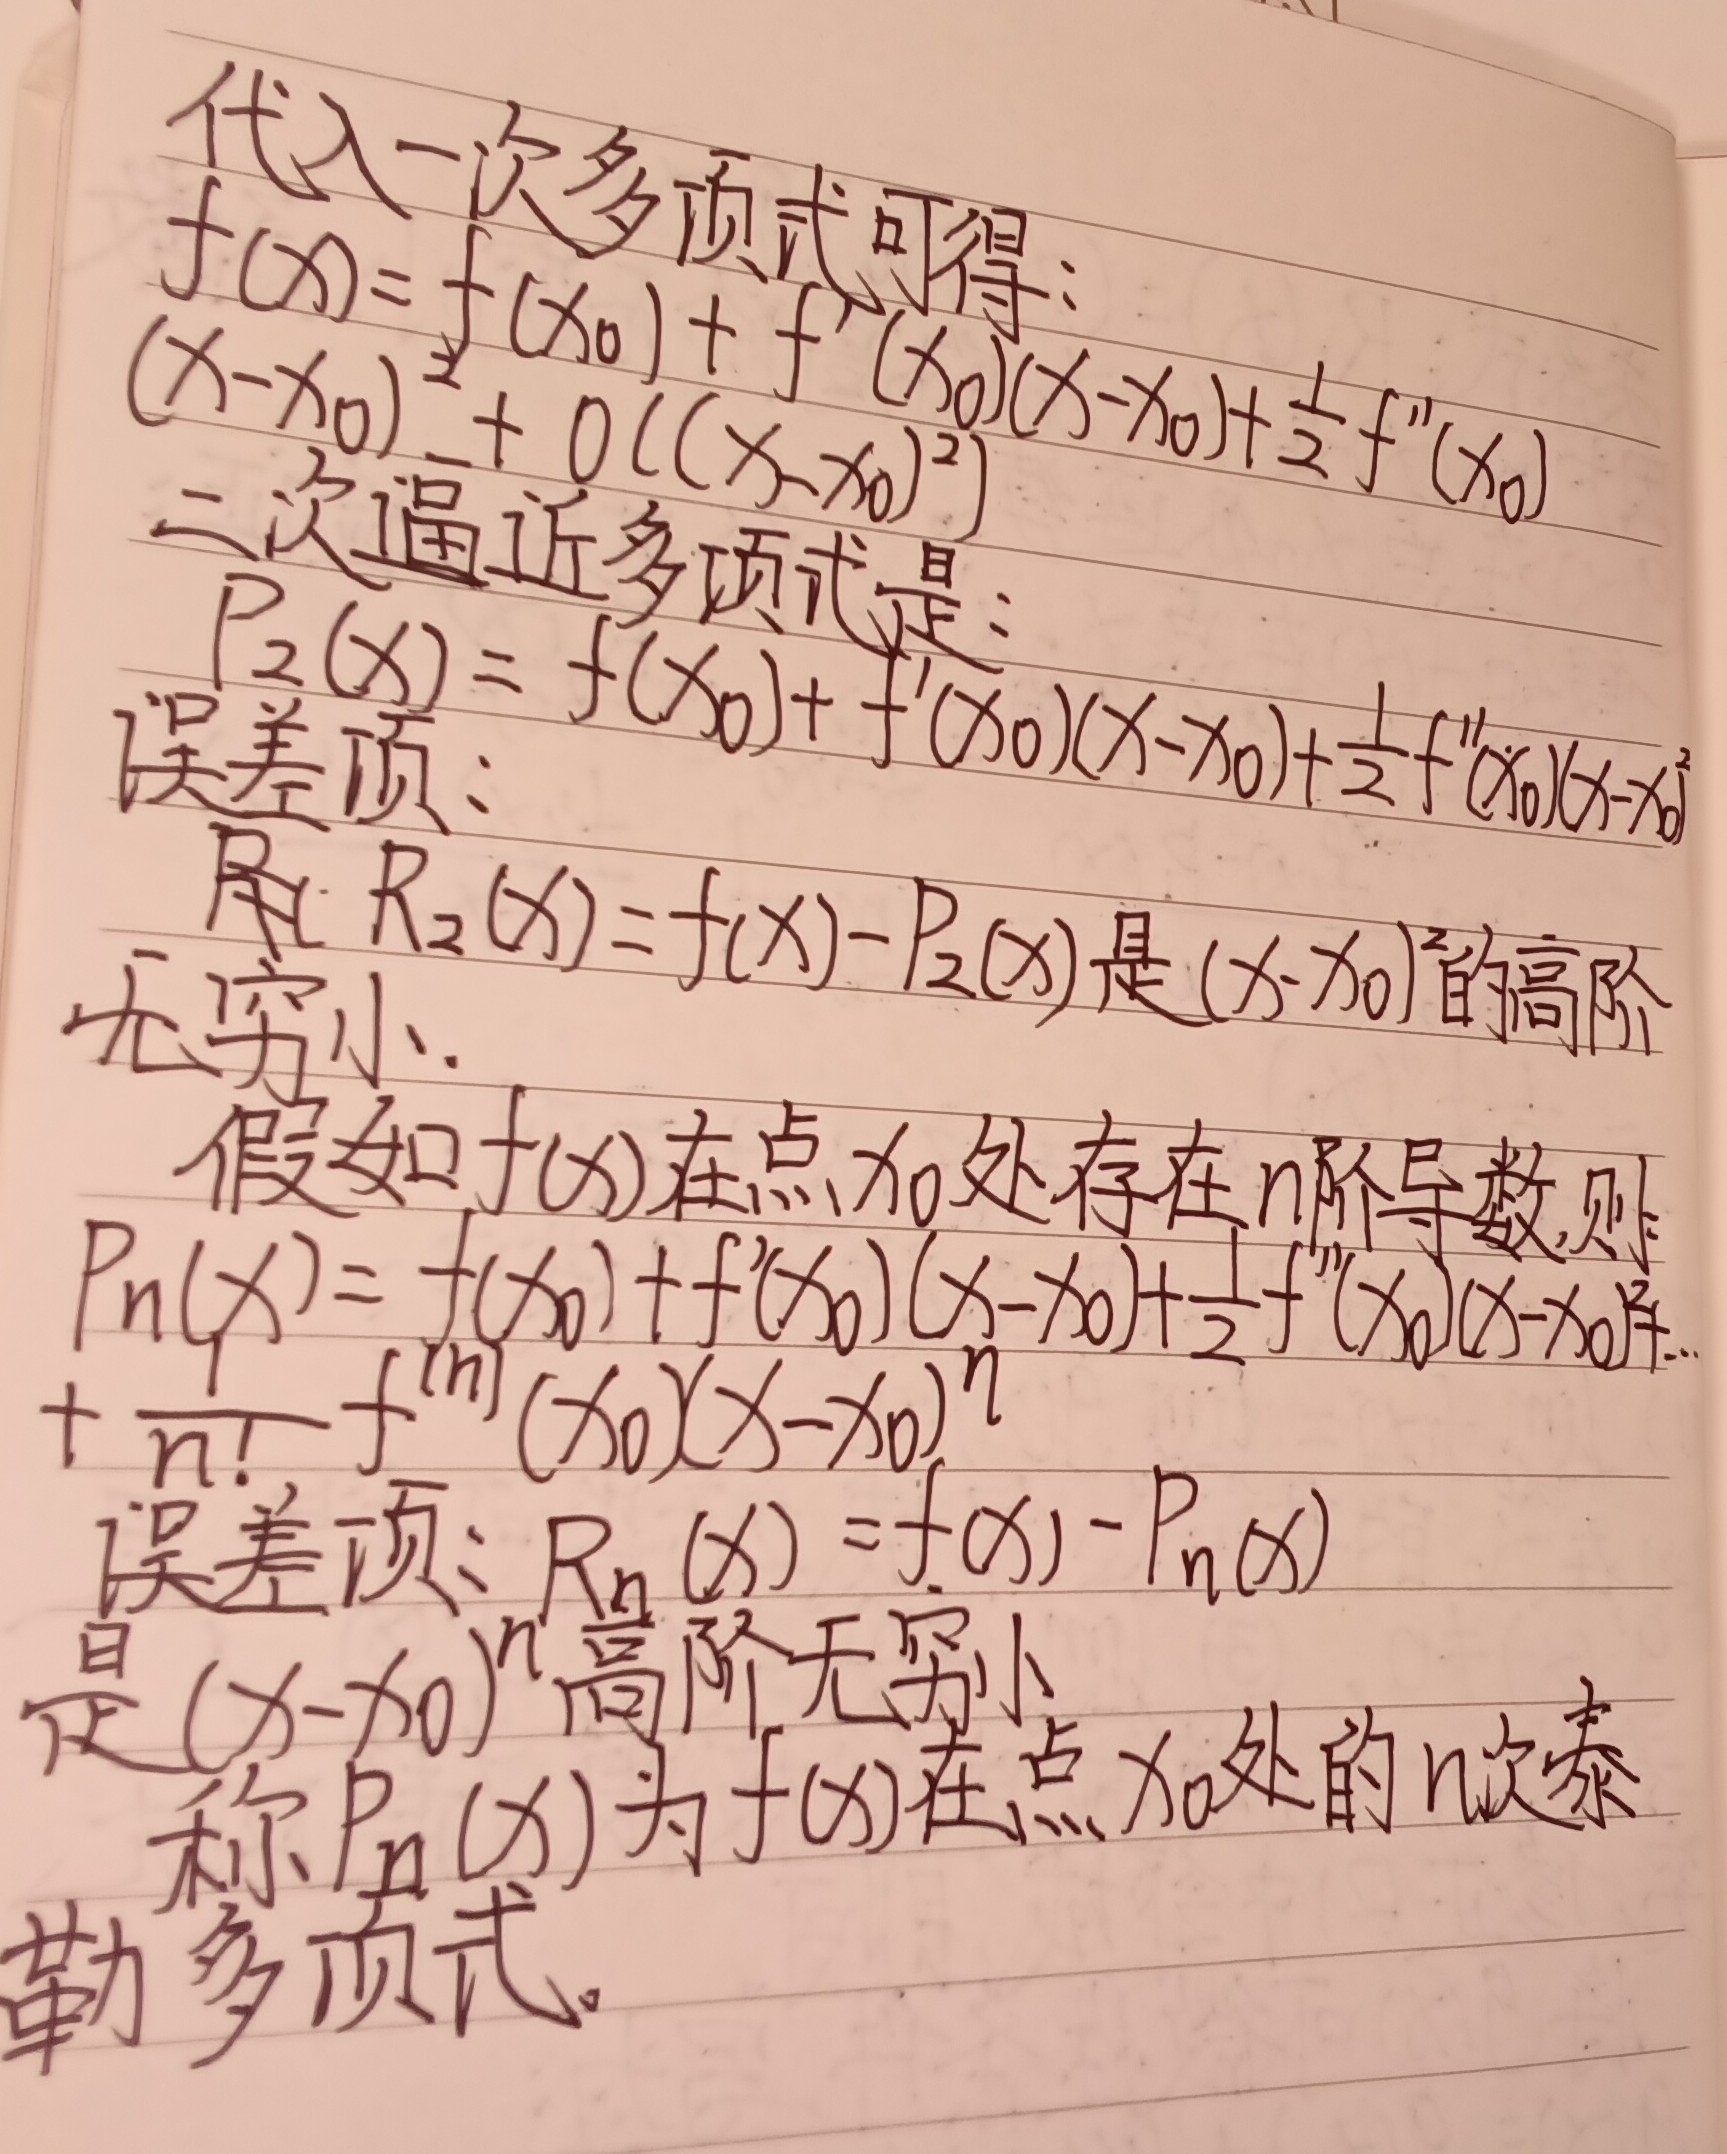 代入一次多项式可得:
f(x) = f(x₀) + f'(x₀)(x-x₀) + 1/2 f''(x₀)
(x-x₀)² + o((x-x₀)²)
二次逼近多项式是:
P₂(x) = f(x₀) + f'(x₀)(x-x₀) + 1/2 f''(x₀)(x-x₀)²
误差项:
R₂(x) = f(x) - P₂(x) 是 (x-x₀)² 的高阶
无穷小.
假如 f(x) 在点 x₀ 处存在 n 阶导数,则
Pn(x) = f(x₀) + f'(x₀)(x-x₀) + 1/2 f''(x₀)(x-x₀)² + ...
+ 1/n! f⁽ⁿ⁾(x₀)(x-x₀)ⁿ
误差项: Rn(x) = f(x) - Pn(x)
是 (x-x₀)ⁿ 高阶无穷小
称 Pn(x) 为 f(x) 在点 x₀ 处的 n 次泰
勒多项式。